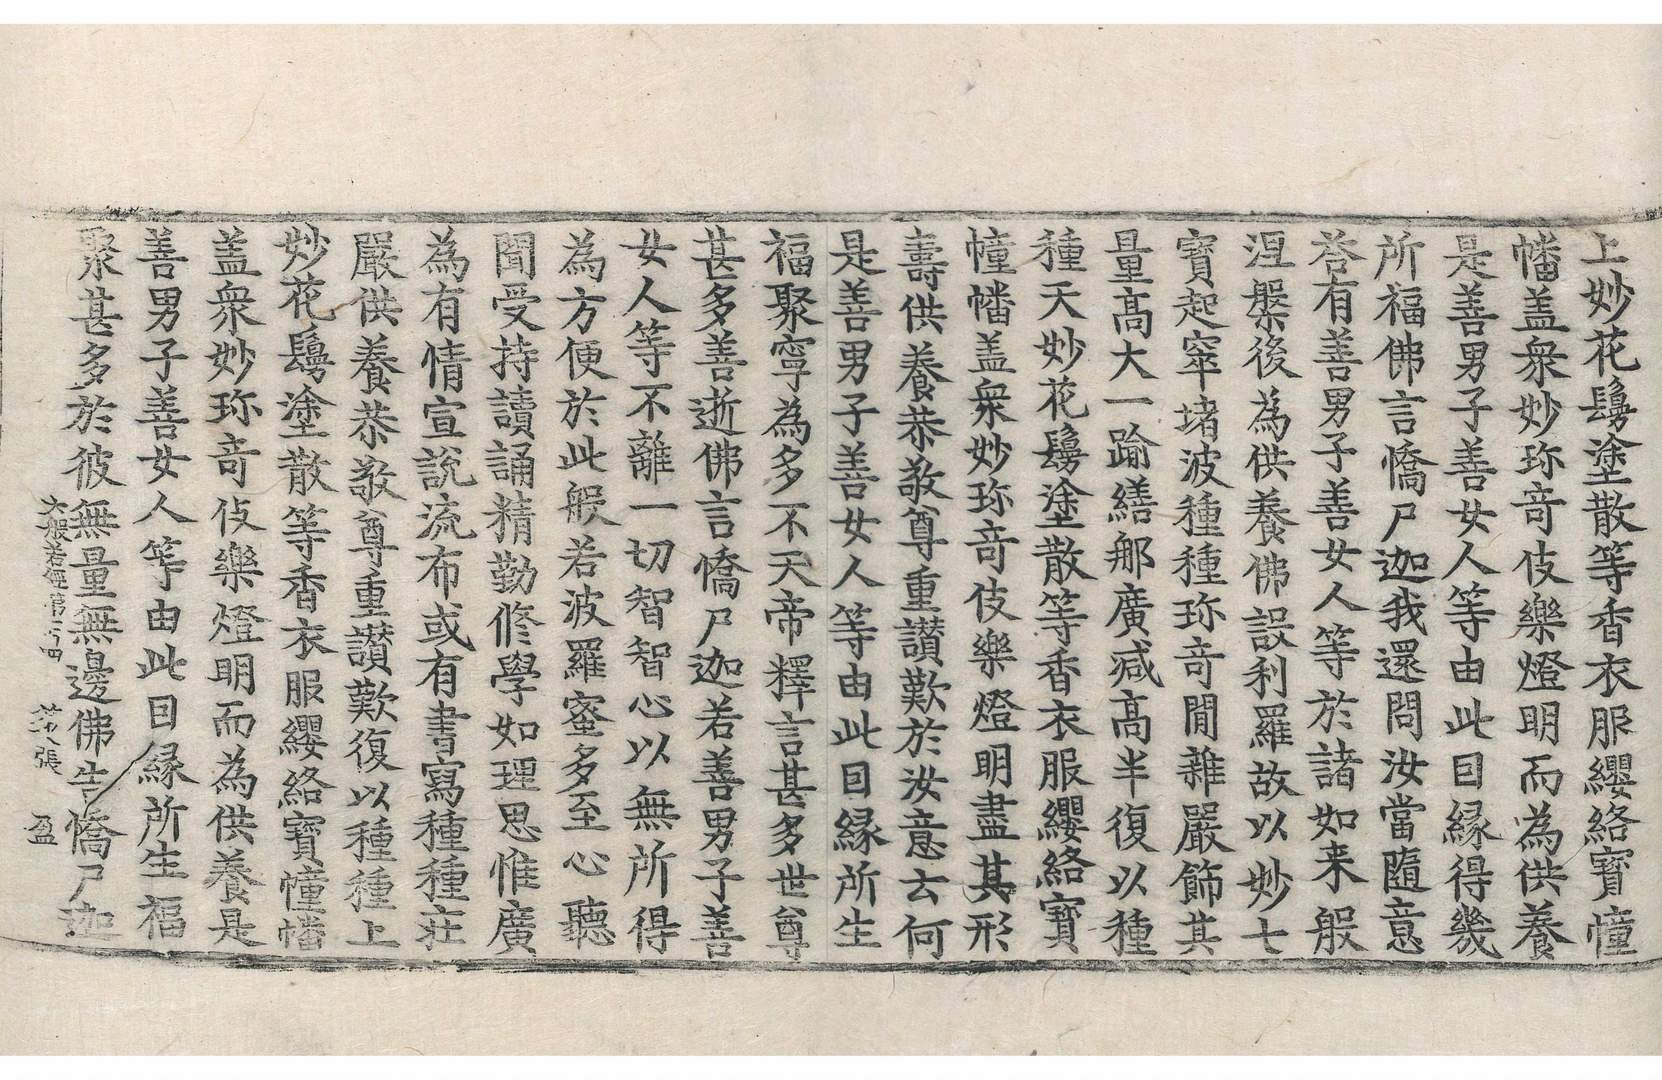 上妙花鬘塗散等香衣服纓絡寳幢
幡盖衆妙珎竒伎樂燈明而為供養
是善男子善女人等由此因縁得幾
所福佛言憍尸迦我還問汝當隨意
荅有善男子善女人等於諸如来般
涅槃後為供養佛設利羅故以妙七
寳起窣堵波種種珎竒間雜嚴飾其
量髙大一踰繕那廣减髙半復以種
種天妙花鬘塗散等香衣服纓絡寳
幢幡盖衆妙珎竒伎樂燈明盡其形
壽供養恭敬尊重讃歎於汝意云何
是善男子善女人等由此因縁所生
福聚寧為多不天帝釋言甚多世尊
甚多善逝佛言憍尸迦若善男子善
女人等不離一切智智心以無所得
為方便於此般若波羅蜜多至心聽
聞受持讀誦精勤修學如理思惟廣
為有情宣說流布或有書寫種種莊
嚴供養恭敬尊重讃歎復以種種上
妙花鬘塗散等香衣服纓絡寳幢幡
盖衆妙珎竒伎樂燈明而為供養是
善男子善女人等由此因縁所生福
聚甚多於彼無量無邊佛告憍尸迦
大般若經第一百四 第八張 盈